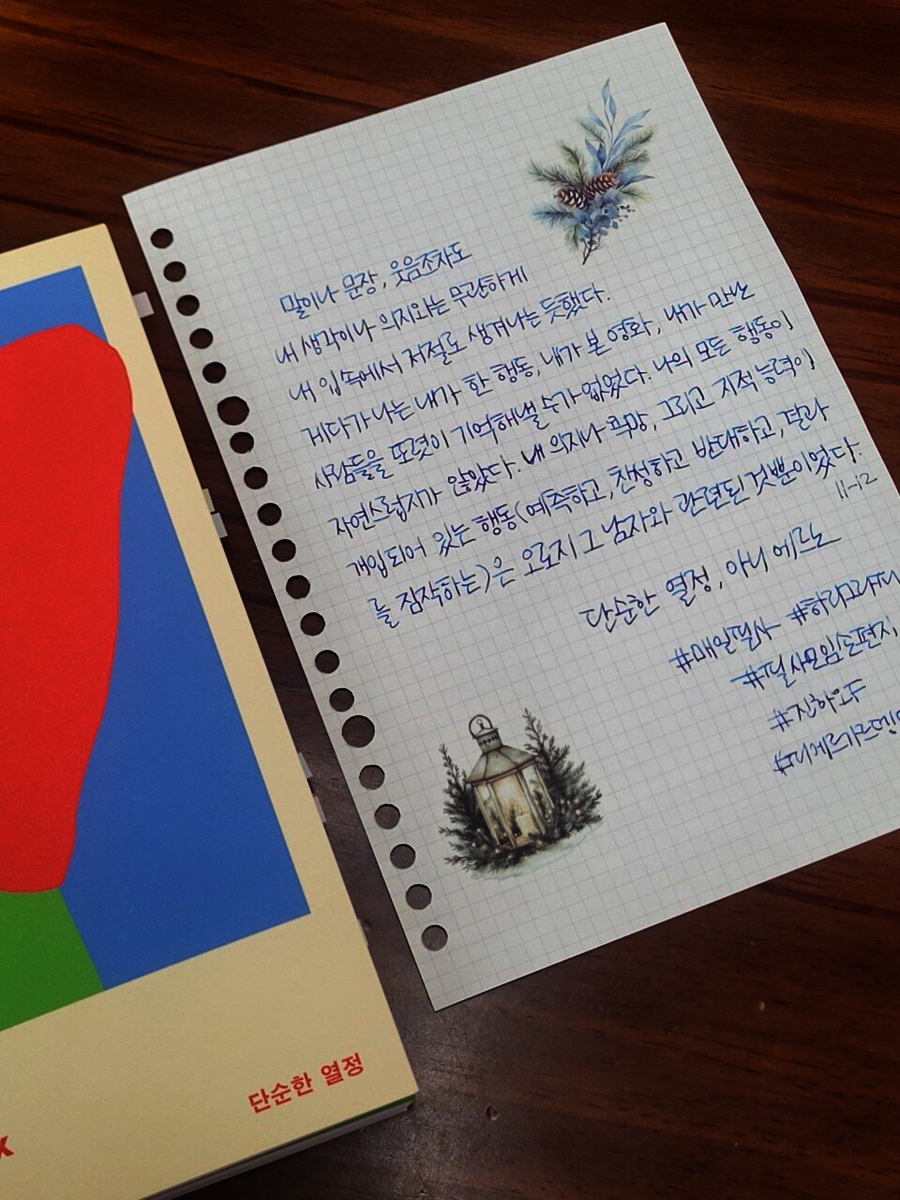 말이나 문장, 웃음조차도
내 생각이나 의지와는 무관하게
내 입 속에서 저절로 생겨나는 듯했다.
게다가 나는 내가 한 행동, 내가 본 영화, 내가 만난
사람들을 또렷이 기억해낼 수가 없었다. 나의 모든 행동이
자연스럽지가 않았다. 내 의지나 욕망, 그리고 지적 능력이
개입되어 있는 행동(예측하고, 찬성하고 반대하고, 결과
를 짐작하는)은 오로지 그 남자와 관련된 것뿐이었다.
11-12
단순한 열정, 아니 에르노
#매일필사
#필사모임손편지
#진하오
단순한 열정